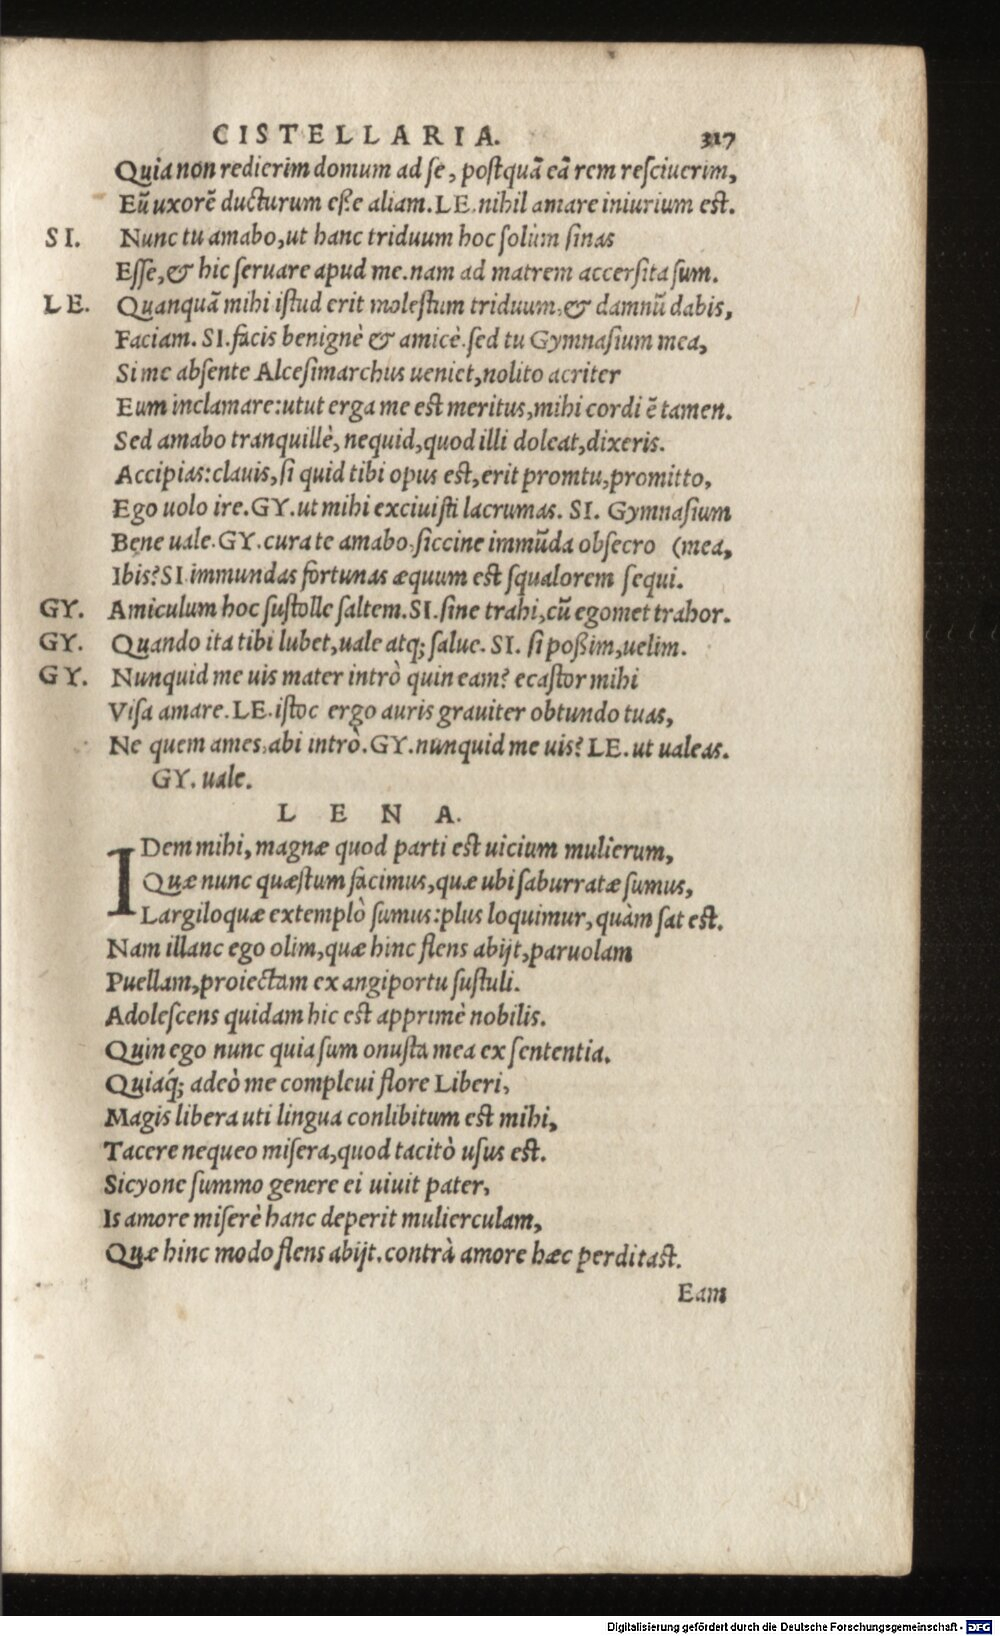 CISTELLARIA. 317
Quia non redierim domum ad se, postquã eã rem resciuerim,
Eũ uxorẽ ducturum eße aliam. LE. nihil amare iniurium est.
SI. Nunc tu amabo, ut hanc triduum hoc solùm sinas
Esse, & hic seruare apud me. nam ad matrem accersita sum.
LE. Quanquã mihi istud erit molestum triduum, & damnũ dabis,
Faciam. SI. facis benignè & amicè. sed tu Gymnasium mea,
Si me absente Alcesimarchus ueniet, nolito acriter
Eum inclamare: utut erga me est meritus, mihi cordi ẽ tamen.
Sed amabo tranquillè, nequid, quod illi doleat, dixeris.
Accipias: clauis, si quid tibi opus est, erit promtu, promitto,
Ego uolo ire. GY. ut mihi exciuisti lacrumas. SI. Gymnasium
Bene uale. GY. cura te amabo. siccine immũda obsecro (mea,
Ibis? SI. immundas fortunas æquum est squalorem sequi.
GY. Amiculum hoc sustolle saltem. SI. sine trahi, cũ egomet trahor.
GY. Quando ita tibi lubet, uale atq; salue. SI. si poßim, uelim.
GY. Nunquid me uis mater intrò quin eam? ecastor mihi
Visa amare. LE. istoc ergo auris grauiter obtundo tuas,
Ne quem ames, abi intrò. GY. nunquid me uis? LE. ut ualeas.
GY. uale.
LENA.
IDem mihi, magnæ quod parti est uicium mulierum,
Quæ nunc quæstum facimus, quæ ubi saburratæ sumus,
Largiloquæ extemplò sumus: plus loquimur, quàm sat est.
Nam illanc ego olim, quæ hinc flens abijt, paruolam
Puellam, proiectam ex angiportu sustuli.
Adolescens quidam hic est apprimè nobilis.
Quin ego nunc quia sum onusta mea ex sententia.
Quiaq́; adeò me compleui flore Liberi,
Magis libera uti lingua conlibitum est mihi,
Tacere nequeo misera, quod tacitò usus est.
Sicyone summo genere ei uiuit pater,
Is amore miserè hanc deperit mulierculam,
Quæ hinc modo flens abijt. contrà amore hæc perditast.
Eam
Digitalisierung gefördert durch die Deutsche Forschungsgemeinschaft - DFG